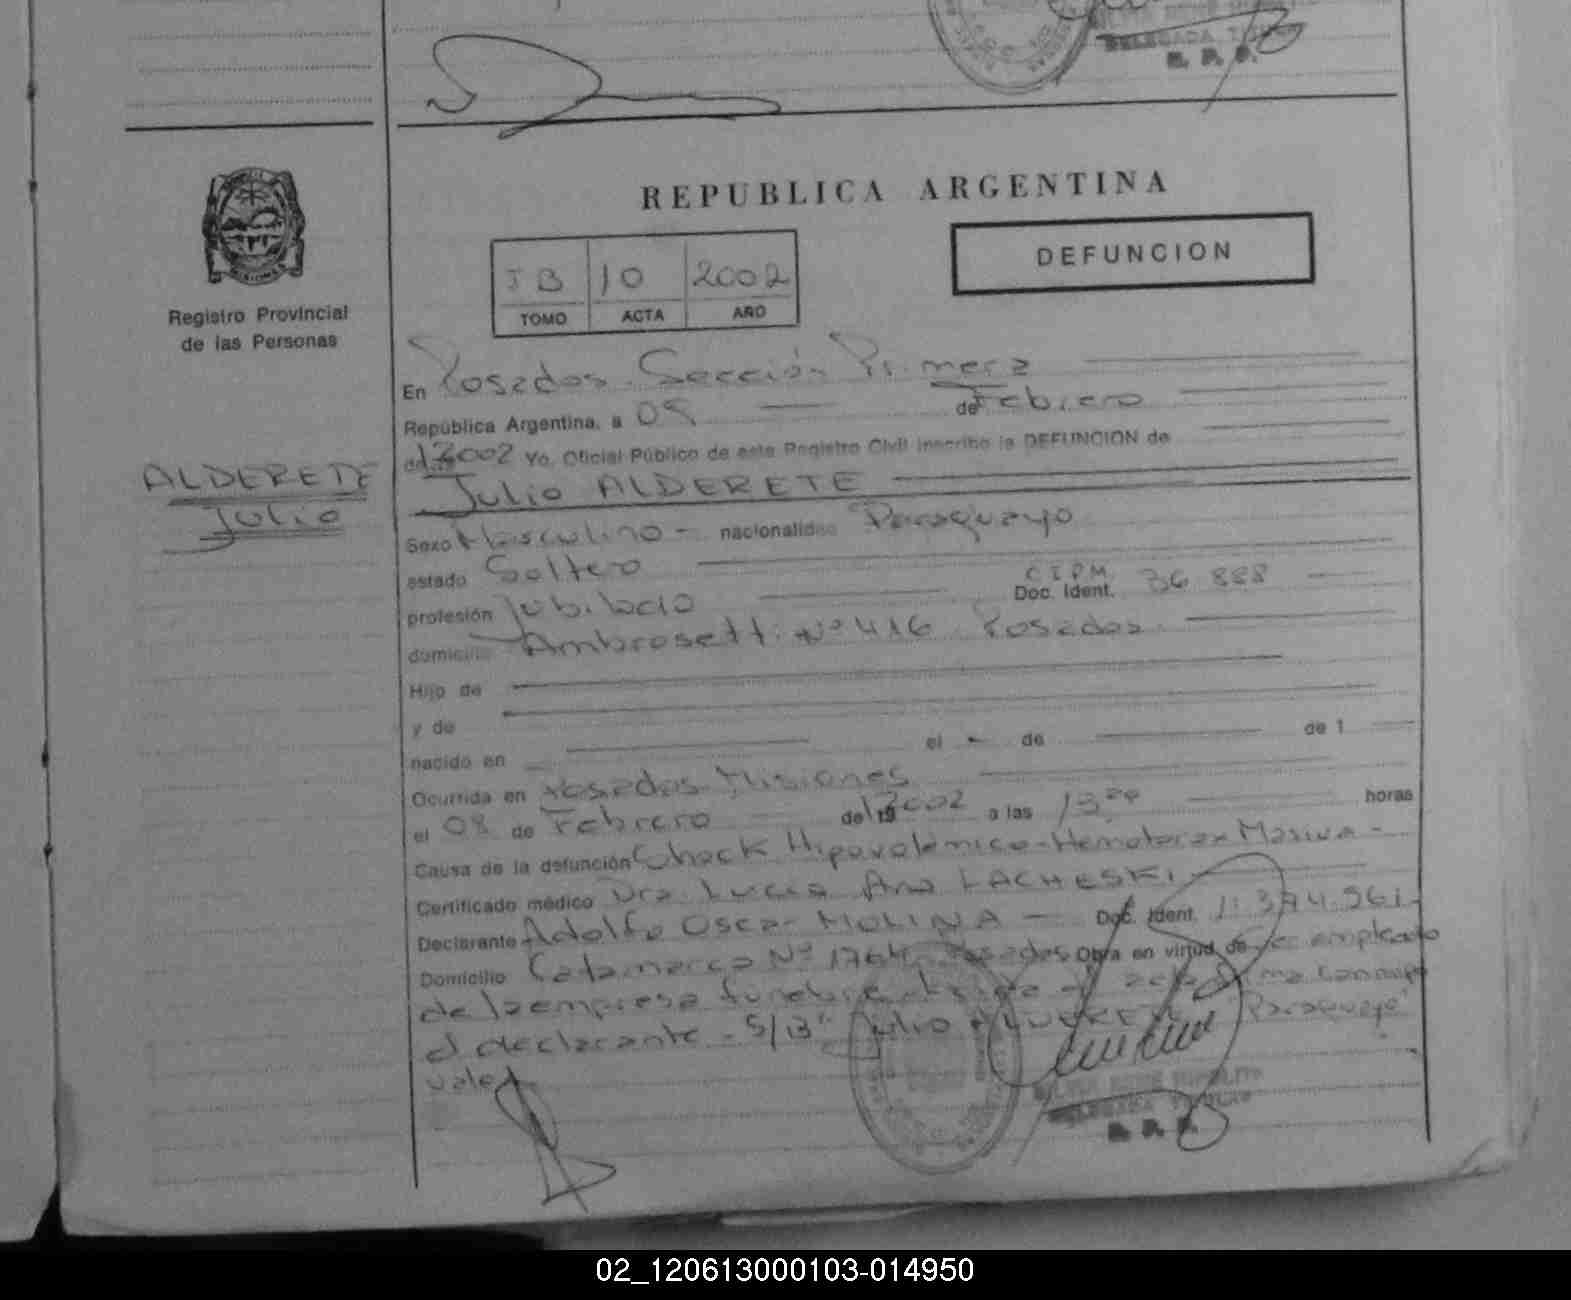 DELEGADA TITULAR
R. P. P.
REPUBLICA ARGENTINA
DEFUNCION
I B 10 2002
TOMO ACTA AÑO
Registro Provincial
de las Personas
En Posadas Sección Primera
República Argentina, a 09 de Febrero
de 2002 Yo, Oficial Público de este Registro Civil inscribo la DEFUNCION de
ALDERETE
Julio
Julio ALDERETE
Sexo Masculino - nacionalidad Paraguayo
estado Soltero
profesión Jubilado C I P M Doc. Ident. 36 888
domicilio Ambrosetti Nº 416 Posadas
Hijo de
y de
nacido en el - de de 1
Ocurrida en Posadas Misiones
el 08 de Febrero de 2002 a las 13 horas
Causa de la defunción Shock Hipovolémico - Hemotorax Masivo -
Certificado médico Dra. Lucia Ana LACHESKI
Declarante Adolfo Oscar MOLINA - Doc. Ident. 11.394.561
Domicilio Catamarca Nº 1764 Posadas Obra en virtud de ser empleado
de la empresa funebre el acta firma conmigo
el declarante - S/B" Julio ALDERETE "Paraguayo"
vale
DELEGADA TITULAR
R. P. P.
02_120613000103-014950